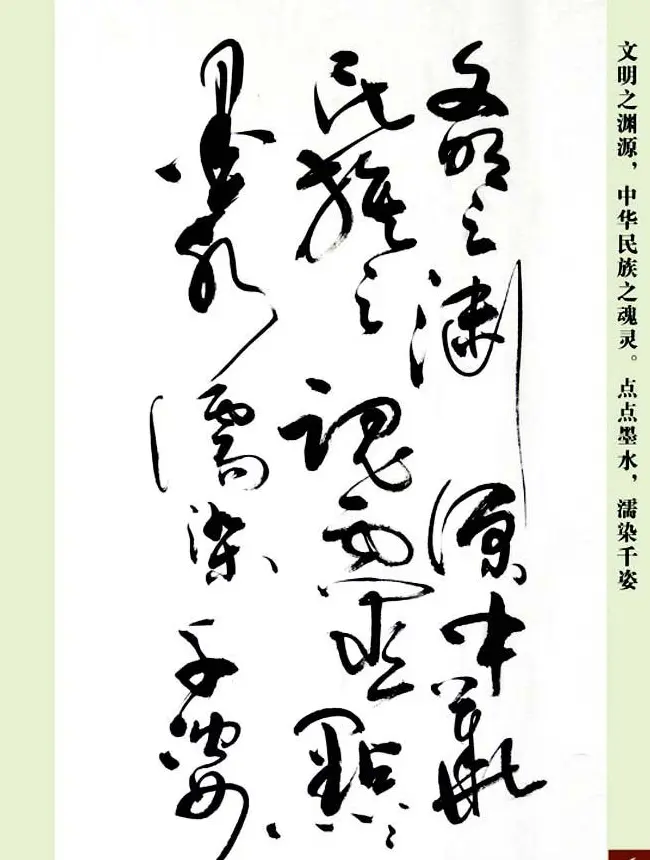 文明之渊源，中华民族之魂灵。点点墨水，濡染千姿
文明之渊源中華
民族之魂靈點〻
墨水濡染千姿